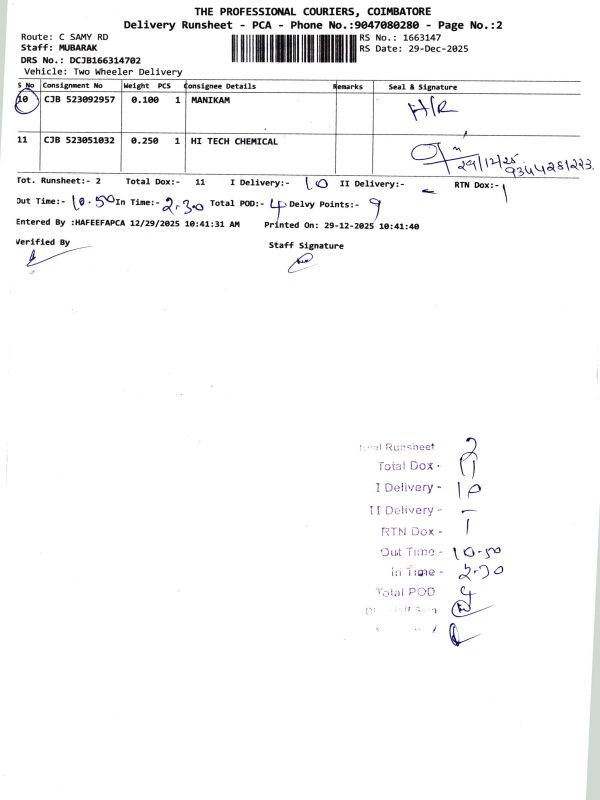 THE PROFESSIONAL COURIERS, COIMBATORE
Delivery Runsheet - PCA - Phone No.:9047080280 - Page No.:2
Route: C SAMY RD
RS No.: 1663147
Staff: MUBARAK
RS Date: 29-Dec-2025
DRS No.: DCJB166314702
Vehicle: Two Wheeler Delivery
S No Consignment No Weight PCS Consignee Details Remarks Seal & Signature
10 CJB 523092957 0.100 1 MANIKAM H/R
11 CJB 523051032 0.250 1 HI TECH CHEMICAL
29/12/25
9344281223
Tot. Runsheet:- 2 Total Dox:- 11 I Delivery:- 10 II Delivery:- - RTN Dox:- 1
Out Time:- 10.50 In Time:- 2.30 Total POD:- 4 Delvy Points:- 9
Entered By :HAFEEFAPCA 12/29/2025 10:41:31 AM Printed On: 29-12-2025 10:41:40
Verified By Staff Signature
Total Runsheet 2
Total Dox - 11
I Delivery - 10
II Delivery - -
RTN Dox - 1
Out Time - 10.50
In Time - 2.30
Total POD 4